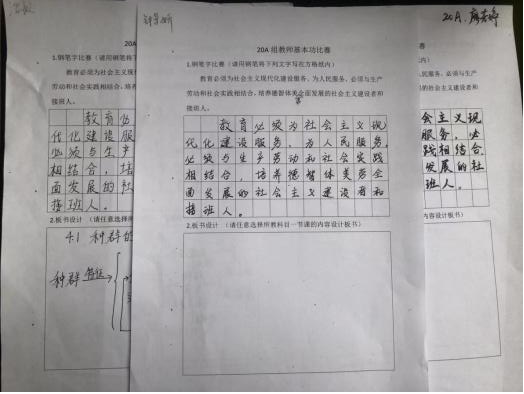 20A
1.钢笔字比赛（请用钢笔将下
教育必须为社会主义现
劳动和社会实践相结合，培养
接班人。
教育必
代化建设服
必须与生产
相结合，培
面发展的社
接班人。
2.板书设计 （请任意选择所
4.1 种群的
种群 特征
20A 组教师基本功比赛
1.钢笔字比赛（请用钢笔将下列文字写在方格纸内）
教育必须为社会主义现代化建设服务、为人民服务，必须与生产
劳动和社会实践相结合，培养德智体美全面发展的社会主义建设者和
接班人。
教育必须为社会主义现
代化建设服务，为人民服务，
必须与生产劳动和社会实践
相结合，培养德智体美劳全
面发展的社会主义建设者和
接班人。
2.板书设计 （请任意选择所教科目一节课的内容设计板书）
20A.
赛
人民服务，必须与生产
的社会主义建设者和
会主义现
服务，必
践相结合，
发展的社
班人。
内容设计板书）